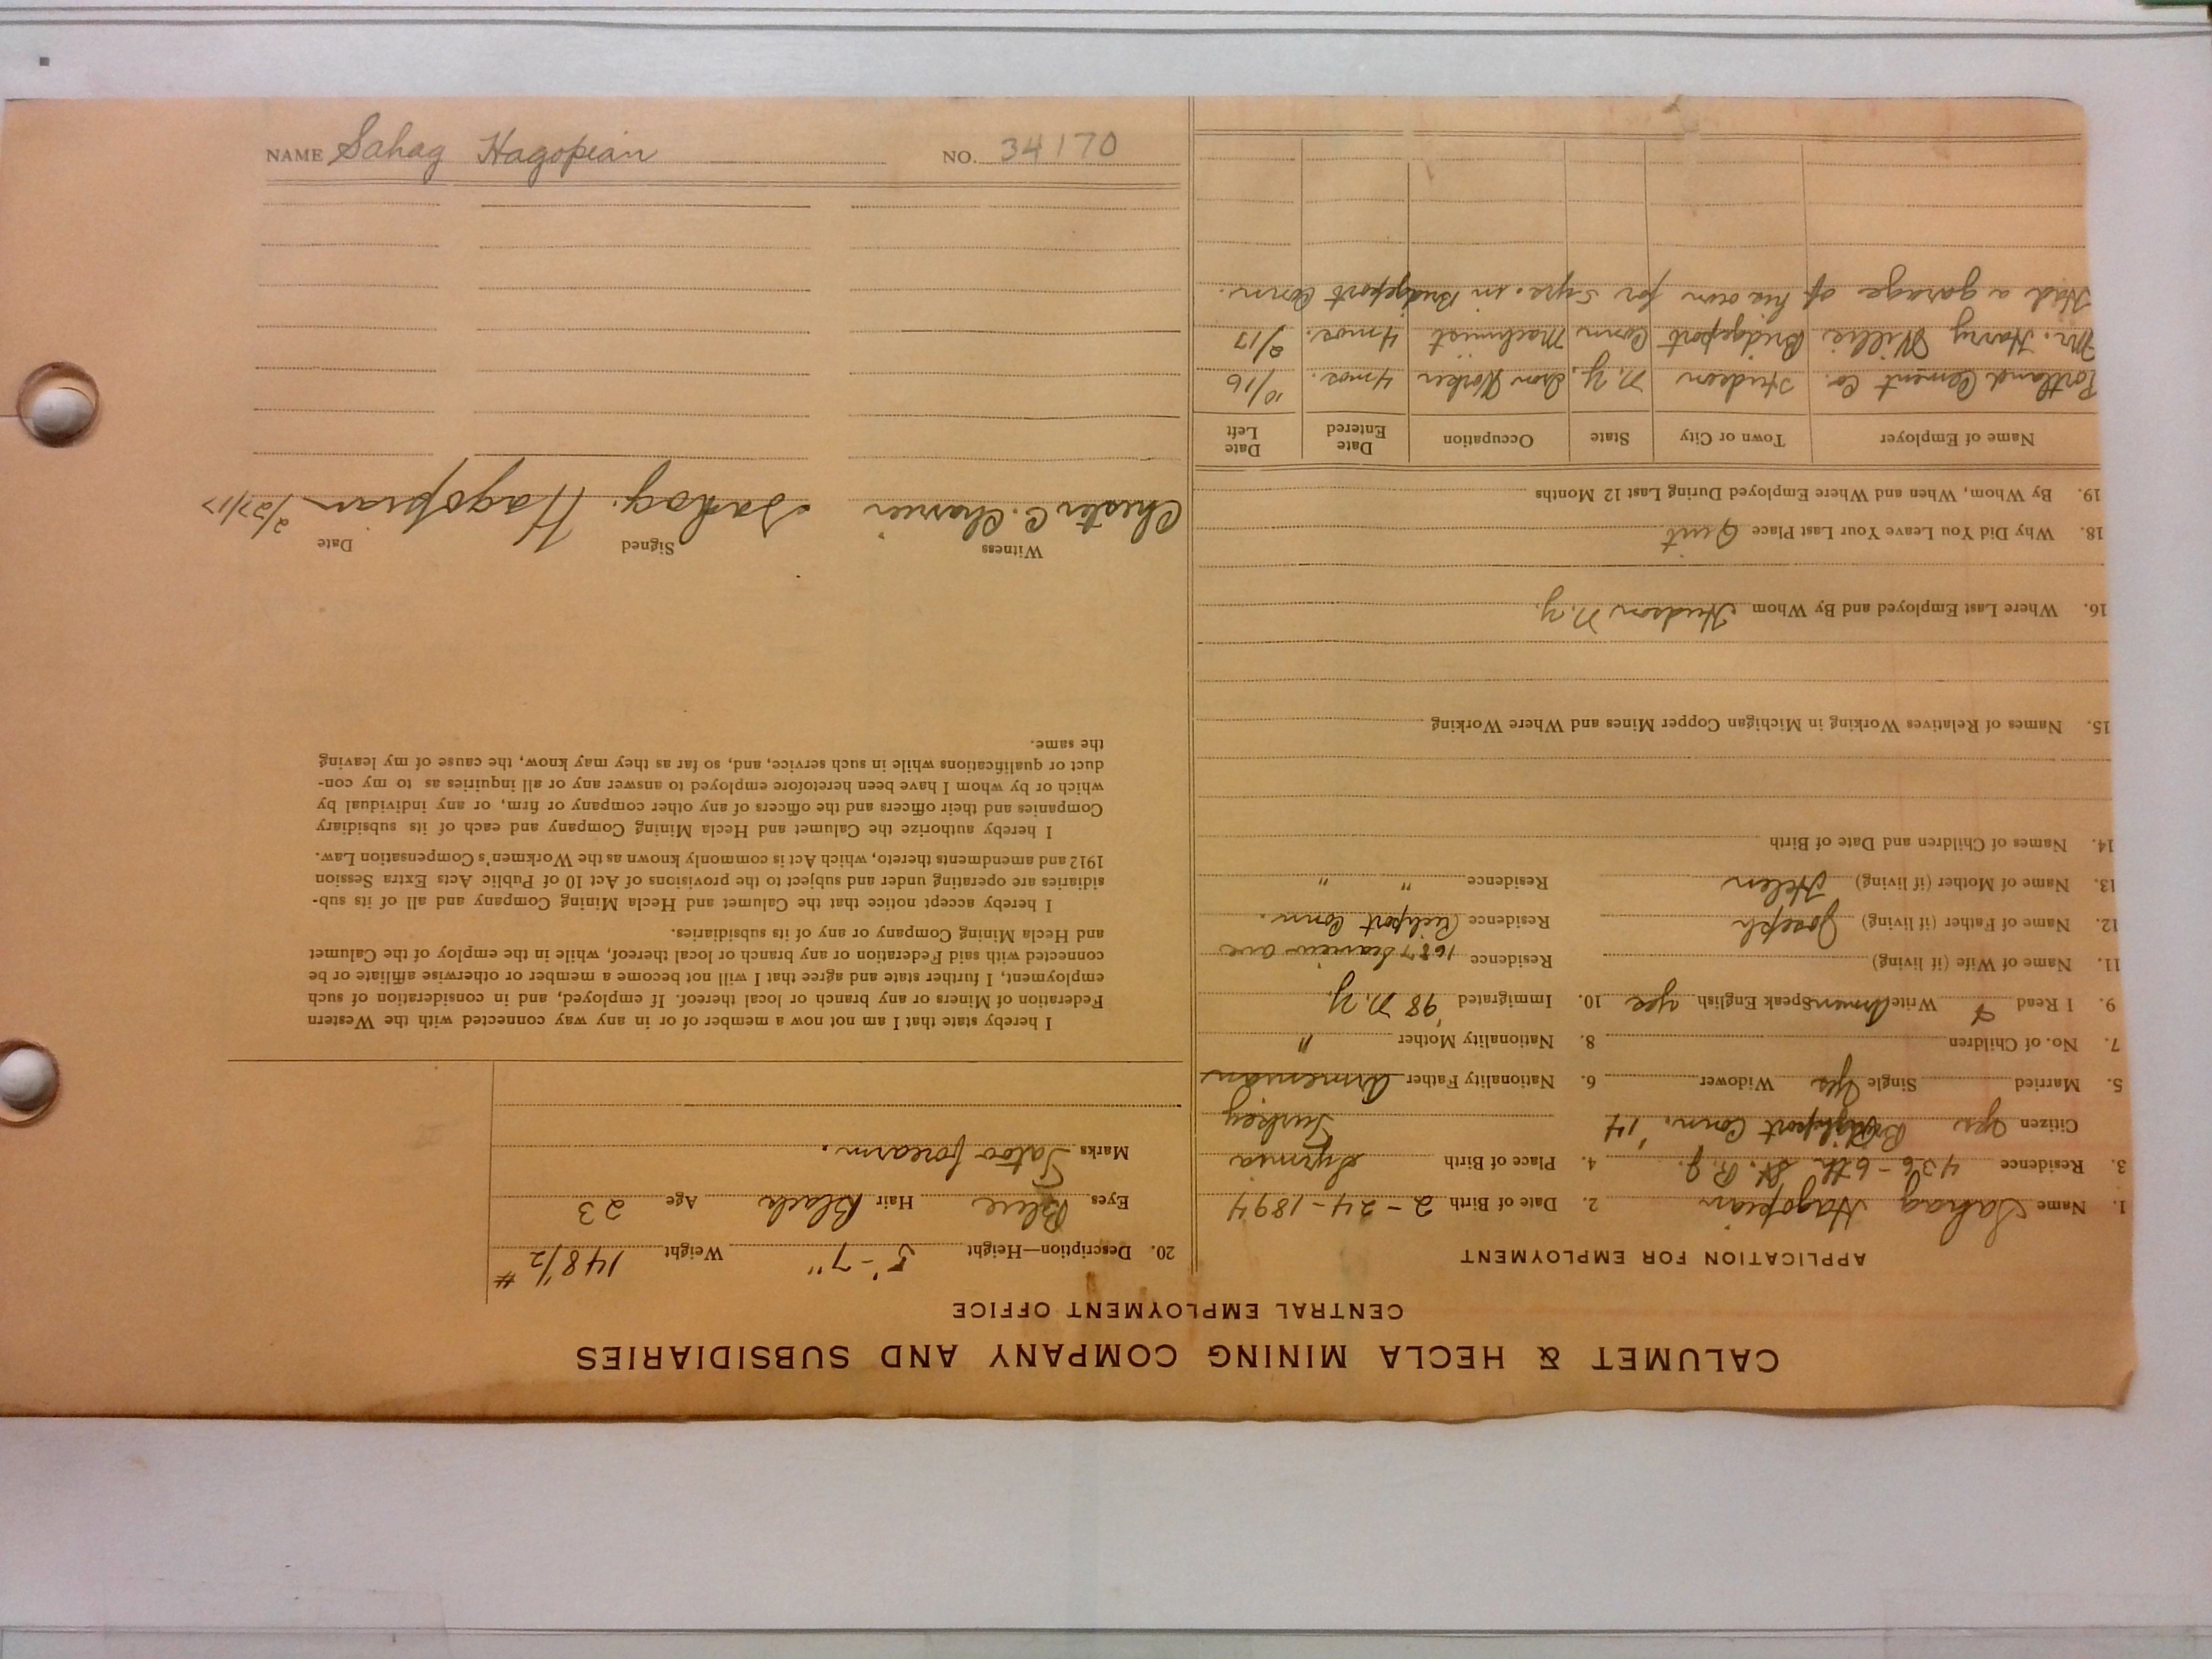 CALUMET & HECLA MINING COMPANY AND SUBSIDIARIES
CENTRAL EMPLOYMENT OFFICE
APPLICATION FOR EMPLOYMENT
1. Name Sahag Hagopian 2. Date of Birth 2-24-1894
3. Residence 436-6th St. R.J. 4. Place of Birth Syrnia
Citizen Yes Bridgeport Conn. '14 Turkey
5. Married Single Yes Widower 6. Nationality Father Armenian
7. No. of Children 8. Nationality Mother "
9. I Read & Write Armen Speak English yes 10. Immigrated '98 N.Y.
11. Name of Wife (if living) Residence 1687 Seaview ave
12. Name of Father (if living) Joseph Residence Conn.
13. Name of Mother (if living) Helen Residence " "
14. Names of Children and Date of Birth
15. Names of Relatives Working in Michigan Copper Mines and Where Working
16. Where Last Employed and By Whom Hudson N.Y.
18. Why Did You Leave Your Last Place Quit
19. By Whom, When and Where Employed During Last 12 Months
Name of Employer Town or City State Occupation Date Entered Date Left
Portland Cement Co. Hudson N.Y. Iron Worker 4 mos. 10/16
Mr. Harry Willis Bridgeport Conn Machinist 4 mos. 2/17
Had a garage of his own for 5 yrs. in Bridgeport Conn.
20. Description—Height 5'-7" Weight 148 1/2 #
Eyes Blue Hair Black Age 23
Marks Tatoo forearm.
I hereby state that I am not now a member of or in any way connected with the Western
Federation of Miners or any branch or local thereof. If employed, and in consideration of such
employment, I further state and agree that I will not become a member or otherwise affiliate or be
connected with said Federation or any branch or local thereof, while in the employ of the Calumet
and Hecla Mining Company or any of its subsidiaries.
I hereby accept notice that the Calumet and Hecla Mining Company and all of its sub-
sidiaries are operating under and subject to the provisions of Act 10 of Public Acts Extra Session
1912 and amendments thereto, which Act is commonly known as the Workmen's Compensation Law.
I hereby authorize the Calumet and Hecla Mining Company and each of its subsidiary
Companies and their officers and the officers of any other company or firm, or any individual by
which or by whom I have been heretofore employed to answer any or all inquiries as to my con-
duct or qualifications while in such service, and, so far as they may know, the cause of my leaving
the same.
Witness Signed Date
Chester C. Sahag. Hagopian 2/27/17
NAME Sahag Hagopian NO. 34170